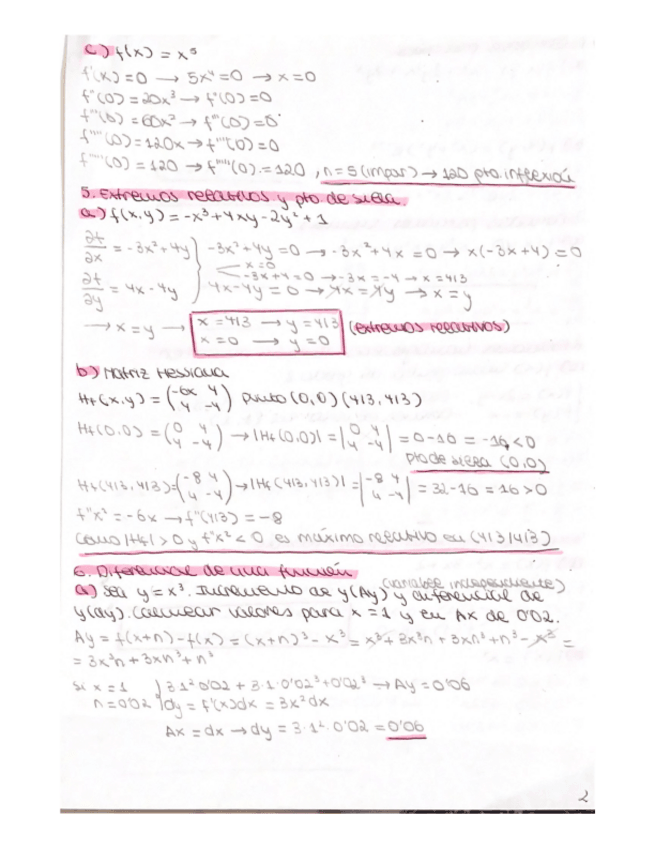 c) f(x) = x⁵
f'(x)=0 → 5x⁴=0 → x=0
f''(0)=20x³ → f''(0)=0
f'''(0)=60x² → f'''(0)=0
f''''(0)=120x → f''''(0)=0
f'''''(0)=120 → f'''''(0)=120, n=5 (impar) → 120 pto. inflexión
5. Extremos relativos y pto. de silla.
a) f(x,y) = -x³+4xy-2y²+1
∂f/∂x = -3x²+4y } -3x²+4y=0 → -3x²+4x=0 → x(-3x+4)=0
x=0
-3x+4=0 → -3x=-4 → x=4/3
∂f/∂y = 4x-4y } 4x-4y=0 → 4x=4y → x=y
→ x=y → x=4/3 → y=4/3 (extremos relativos)
x=0 → y=0
b) Matriz Hessiana
Hf(x,y) = (-6x 4 / 4 -4) punto (0,0) (4/3,4/3)
Hf(0,0) = (0 4 / 4 -4) → |Hf(0,0)| = |0 4 / 4 -4| = 0-16 = -16 < 0
pto de silla (0,0)
Hf(4/3,4/3)=(-8 4 / 4 -4) → |Hf(4/3,4/3)| = |-8 4 / 4 -4| = 32-16 = 16 > 0
f''x² = -6x → f''(4/3) = -8
Como |Hf| > 0 y f''x² < 0 es máximo relativo en (4/3,4/3)
6. Diferencial de una función
(variable independiente)
a) Sea y=x³. Incremento de y(Δy) y diferencial de
y(dy). Calcular valores para x=1 y un Δx de 0'02.
Δy = f(x+h)-f(x) = (x+h)³-x³ = x³+3x²h+3xh²+h³-x³ =
= 3x²h+3xh²+h³
Si x=1 } 3·1²·0'02 + 3·1·0'02²+0'02³ → Δy=0'06
h=0'02 } dy = f'(x)dx = 3x²dx
Δx = dx → dy = 3·1²·0'02 = 0'06
2